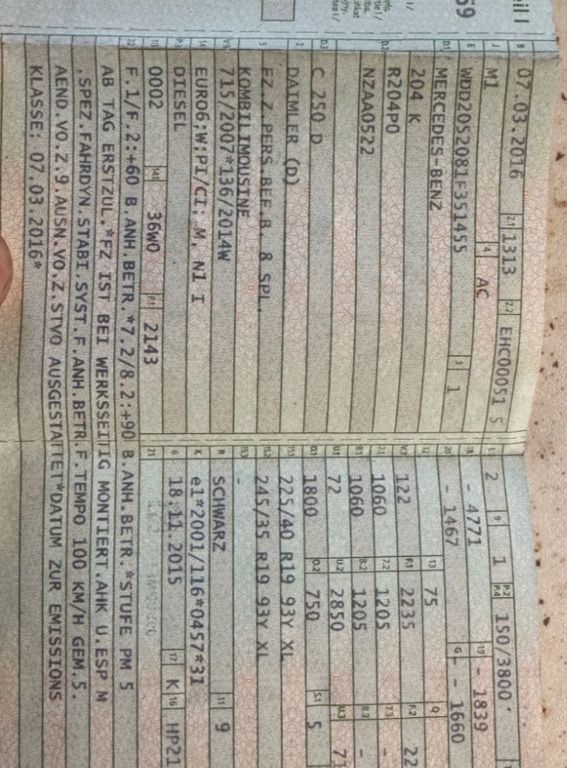 B 07.03.2016 2.1 1313 2.2 EHC00051 5
J M1 4 AC
E WDD2052081F351455 3 1
D.1 MERCEDES-BENZ
D.2 204 K
R204P0
NZAA0522
D.3 C 250 D
2 DAIMLER (D)
5 FZ.Z.PERS.BEF.B. 8 SPL.
KOMBILIMOUSINE
V.9 715/2007*136/2014W
14 EURO6;W:PI/CI; M, N1 I
P.3 DIESEL
10 0002 14.1 36W0 P.1 2143
22 F.1/F.2:+60 B.ANH.BETR.*7.2/8.2:+90 B.ANH.BETR.*STUFE PM 5
AB TAG ERSTZUL.*FZ IST BEI WERKSSEITIG MONTIERT.AHK U.ESP M
.SPEZ.FAHRDYN.STABI.SYST.F.ANH.BETR.F.TEMPO 100 KM/H GEM.5.
AEND.VO.Z.9.AUSN.VO.Z.STVO AUSGESTATTET*DATUM ZUR EMISSIONS
KLASSE: 07.03.2016*
L 2 9 1 P.2 P.4 150/3800
18 - 4771 19 - 1839
20 - 1467 G - - 1660
12 - 13 75 Q -
V.7 122 F.1 2235 F.2 22
7.1 1060 7.2 1205 7.3 -
8.1 1060 8.2 1205 8.3 -
U.1 72 U.2 2850 U.3 71
O.1 1800 O.2 750 S.1 5
15.1 225/40 R19 93Y XL
15.2 245/35 R19 93Y XL
15.3 -
R SCHWARZ 11 9
K e1*2001/116*0457*31
6 18.11.2015 17 K 16 HP21
21